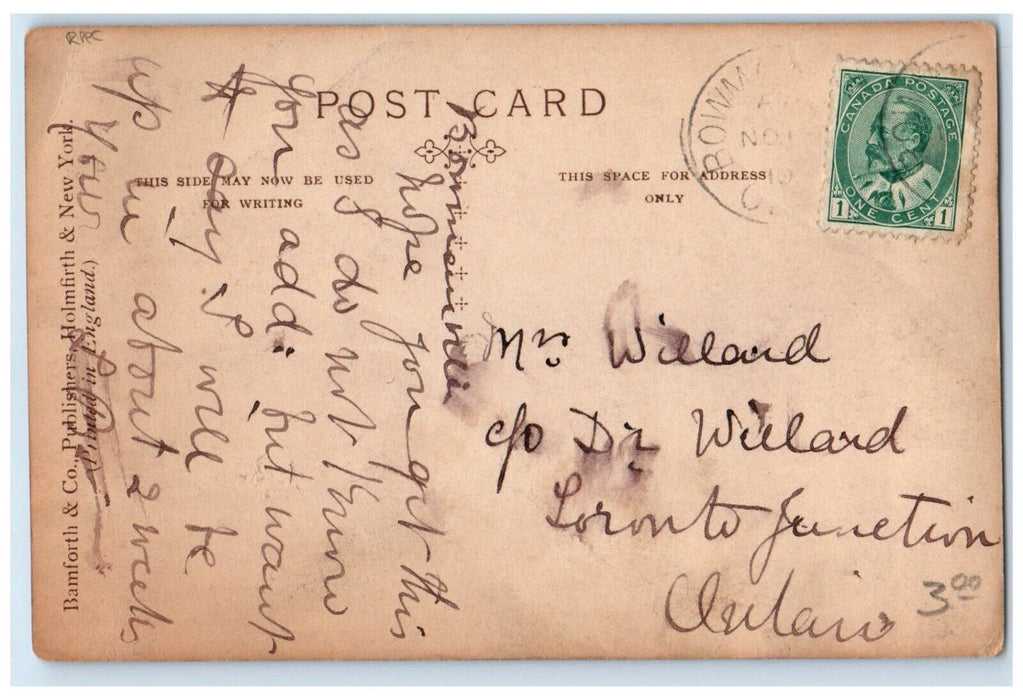 RPPC
POST CARD
THIS SIDE MAY NOW BE USED
FOR WRITING
THIS SPACE FOR ADDRESS
ONLY
Bamforth & Co., Publishers, Holmfirth & New York.
(Printed in England.)
BOWMA
NO
CANADA POSTAGE
ONE CENT
1 1
hope you get this
as do not know
your add. but want
to say I will be
up in about 2 weeks
Mrs Willard
c/o Dr Willard
Toronto Junction
Ontario
3.00